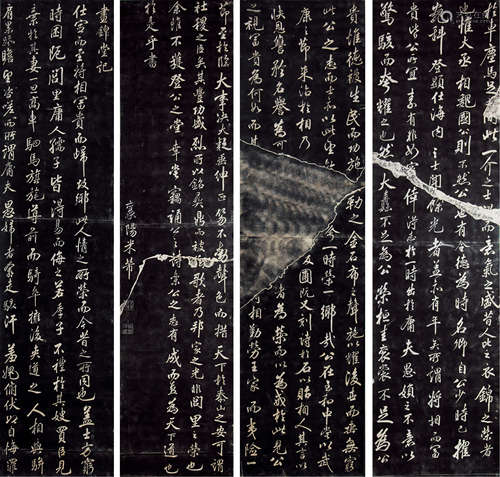 晝錦堂記
仕宦而至將相富貴而歸故鄉此人情之所榮而今昔之所同也蓋士方窮
時困阨閭里庸人孺子皆得易而侮之若季子不禮於其嫂買臣見
棄於其妻一旦高車駟馬旗旄導前而騎卒擁後夾道之人相與駢
肩累跡瞻望咨嗟而所謂庸夫愚婦者奔走駭汗羞愧俯伏以自悔罪
車塵馬足之間此一介之士而意氣之盛昔人比之衣錦之榮者
也惟大丞相魏國公則不然公相人也世有令德為時名卿自公少時已擢
高科登顯仕海內之士聞餘光者蓋亦有年矣所謂將相而富
貴皆公所宜素有非如窮僥倖得志於一時出於庸夫愚婦之不意以
驚駭而夸耀之也然大纛不足為公榮桓圭袞裳不足為公
貴惟德被生民而功施勒之金石播之聲詩以耀後世而垂無窮
此公之志而士亦以此望夸一時而榮一鄉哉公在至和中嘗以武
康之節來治於相乃後圃既又刻詩於石以貽相人其言以
快恩讎矜名譽為可者為榮而以為戒於此見公
之視富貴為何如而其將相勤勞王家而夷險一
節至於臨大事決大議垂紳正笏不動聲色而措天下於泰山之安可謂
社稷之臣矣其豐功盛烈所以銘彝鼎而被絃歌者乃邦家之光非閭里之榮也
余雖不獲登公之堂幸嘗竊誦公之詩樂公之志有成而喜為天下道也
於是乎書
襄陽米芾